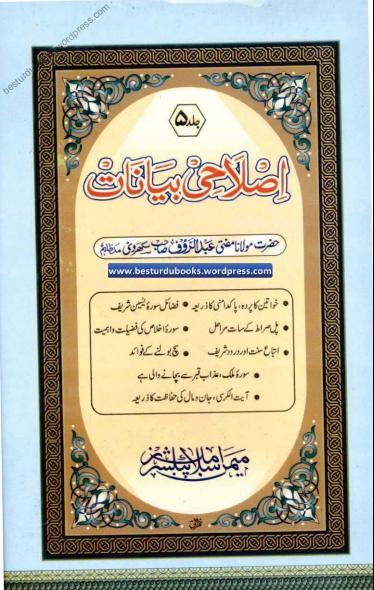 besturdubooks.wordpress.com
جلد ۵
اصلاحی بیانات
حضرت مولانا مفتی عبدالرؤف صاحب سکھروی مدظلہم
www.besturdubooks.wordpress.com
● خواتین کا پردہ، پاکدامنی کا ذریعہ ● فضائل سورۂ یٰسین شریف
● پل صراط کے سات مراحل ● سورۂ اخلاص کی فضیلت و اہمیت
● اتباع سنت اور درود شریف ● سچ بولنے کے فوائد
● سورۂ ملک، عذاب قبر سے بچانے والی ہے
● آیت الکرسی، جان و مال کی حفاظت کا ذریعہ
میمن اسلامک پبلشرز